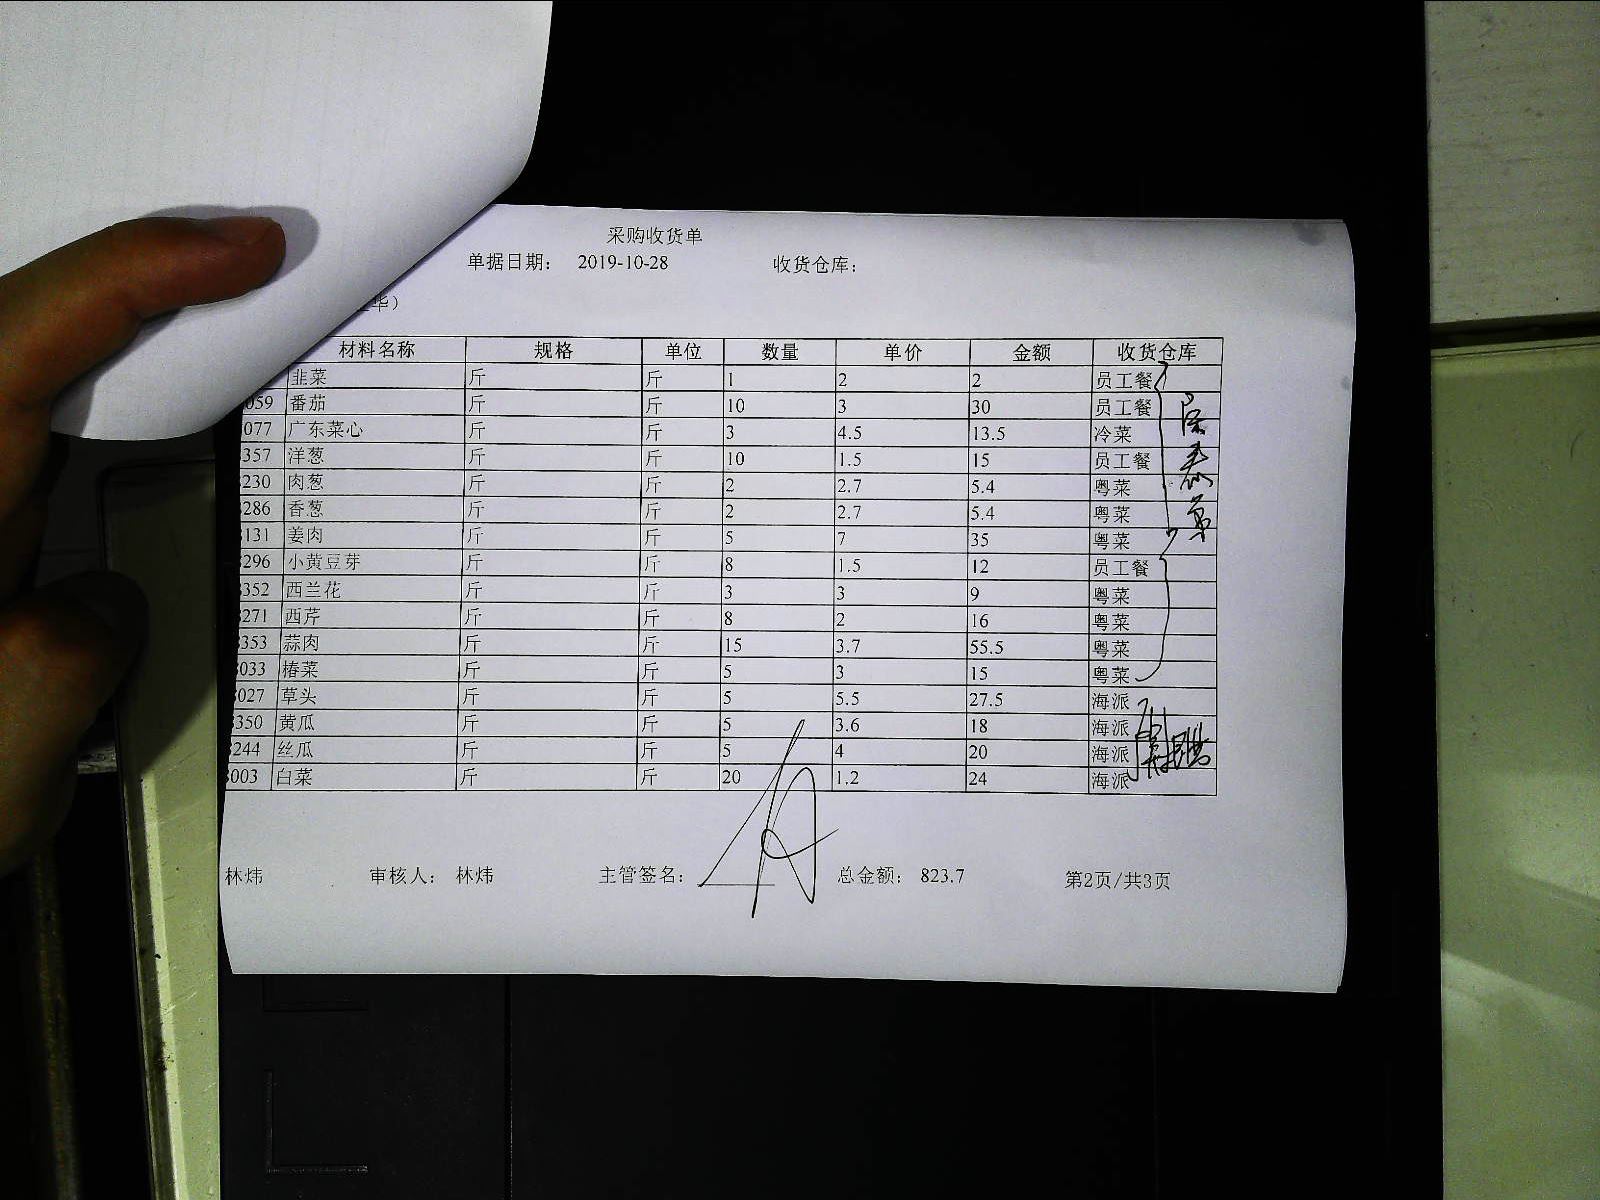 采购收货单
单据日期： 2019-10-28 收货仓库：
华）
材料名称 规格 单位 数量 单价 金额 收货仓库
韭菜 斤 斤 1 2 2 员工餐
059 番茄 斤 斤 10 3 30 员工餐
077 广东菜心 斤 斤 3 4.5 13.5 冷菜
357 洋葱 斤 斤 10 1.5 15 员工餐
230 肉葱 斤 斤 2 2.7 5.4 粤菜
286 香葱 斤 斤 2 2.7 5.4 粤菜
131 姜肉 斤 斤 5 7 35 粤菜
296 小黄豆芽 斤 斤 8 1.5 12 员工餐
352 西兰花 斤 斤 3 3 9 粤菜
271 西芹 斤 斤 8 2 16 粤菜
353 蒜肉 斤 斤 15 3.7 55.5 粤菜
033 椿菜 斤 斤 5 3 15 粤菜
027 草头 斤 斤 5 5.5 27.5 海派
350 黄瓜 斤 斤 5 3.6 18 海派
244 丝瓜 斤 斤 5 4 20 海派
003 白菜 斤 斤 20 1.2 24 海派
林炜 审核人： 林炜 主管签名： 总金额： 823.7 第2页/共3页